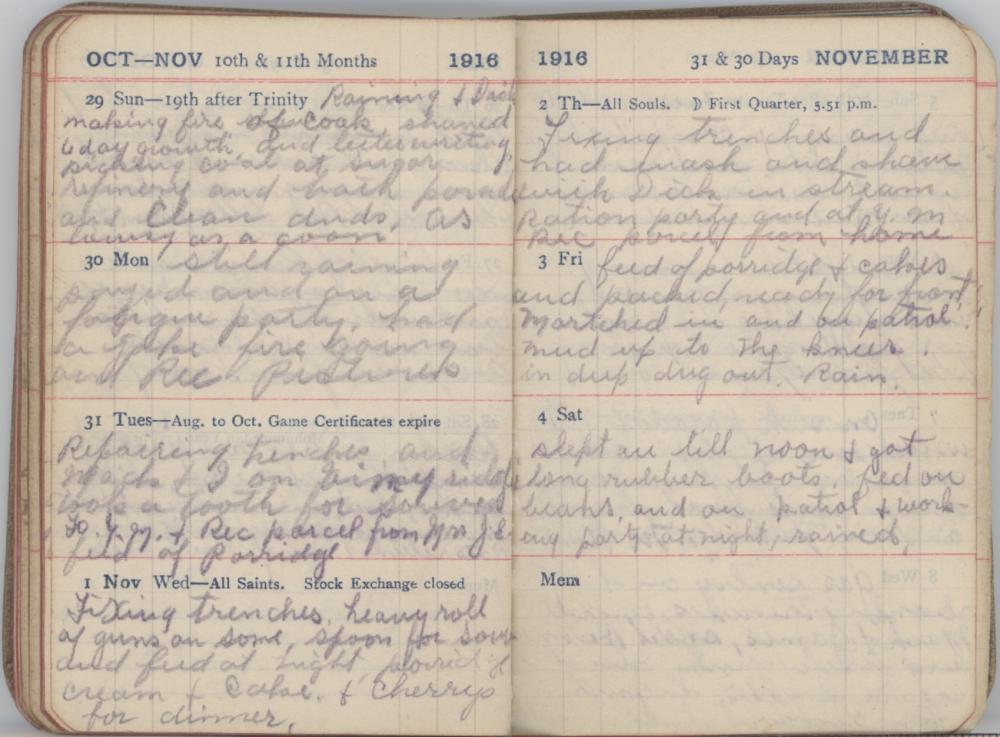 OCT—NOV 10th & 11th Months 1916
29 Sun—19th after Trinity Raining & Dick
making fire cook, shaved
6 day growth, and letter writing
picking coal at sugar
refinery and bath parade
and Clean duds, as
lousy as a coon
30 Mon still raining
payed and on a
fatigue party, had
a coke fire going
and Rec Pictures
31 Tues—Aug. to Oct. Game Certificates expire
Repairing trenches and
Mack & I on Vimy ridge
took a tooth for
& Rec parcel from Mrs
feed of Porridge
1 Nov Wed—All Saints. Stock Exchange closed
Fixing trenches, heavy roll
of guns on some, spoon for
and feed at night porridge
cream & Cake. & Cherrys
for dinner.
1916 31 & 30 Days NOVEMBER
2 Th—All Souls. ☽ First Quarter, 5.51 p.m.
Fixing trenches and
had wash and shave
with Dick in stream.
Ration party and at Y.M
Rec parcel from home
3 Fri feed of porridge & cakes
and packed, ready for front
Martched in and on patrol.
mud up to the knees.
in deep dug out. Rain.
4 Sat
slept in till noon & got
long rubber boots. fed on
beans, and on patrol & work-
ing party at night, rained,
Mem